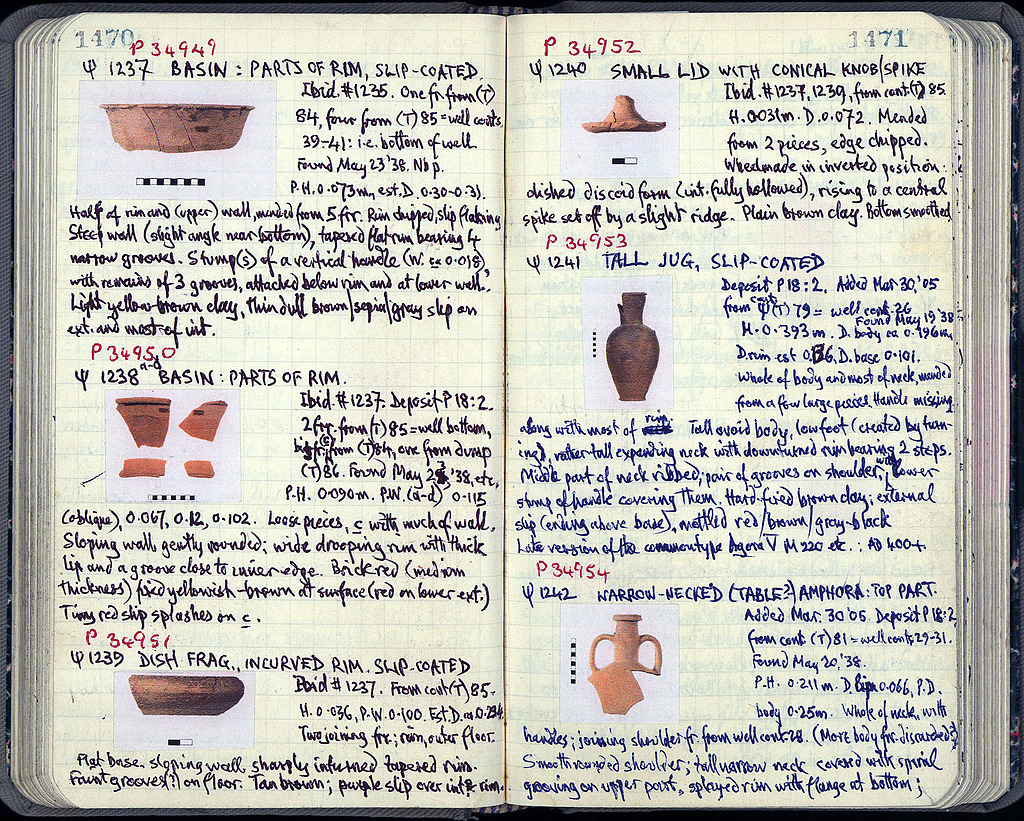 1470
P 34949
Ψ 1237 BASIN: PARTS OF RIM, SLIP-COATED.
Ibid. #1235. One fr. from (T)
84, four from (T) 85 = well conts.
39-41: i.e. bottom of well.
Found May 23 '38. Nb p.
P.H. 0.073m, est. D. 0.30-0.31.
Half of rim and (upper) wall, mended from 5 fr. Rim chipped, slip flaking
Steep wall (slight angle near bottom), tapered flat rim bearing 4
narrow grooves. Stump(s) of a vertical handle (W. ca 0.018)
with remains of 3 grooves, attached below rim and at lower wall.
Light yellow-brown clay, thin dull brown/sepia/gray slip on
ext. and most of int.
P 34950
Ψ 1238 a-d BASIN: PARTS OF RIM.
Ibid. #1237. Deposit P 18:2.
2 frr. from (T) 85 = well bottom,
big fr. (c) from (T) 84, one from dump
(T) 86. Found May '38, etc.
P.H. 0.090m. P.W. (a-d) 0.115
(oblique), 0.067, 0.12, 0.102. Loose pieces, c with much of wall.
Sloping wall gently rounded; wide drooping rim with thick
lip and a groove close to inner edge. Brick red (medium
thickness) fired yellowish-brown at surface (red on lower ext.)
Tiny red slip splashes on c.
P 34951
Ψ 1239 DISH FRAG., INCURVED RIM. SLIP-COATED
Ibid #1237. From cont (T) 85.
H. 0.036, P.W. 0.100. Est. D. ca 0.234.
Two joining frr.; rim, outer floor.
Flat base, sloping wall, sharply inturned tapered rim.
Faint grooves(?) on floor. Tan brown; purple slip over int & rim.
1471
P 34952
Ψ 1240 SMALL LID WITH CONICAL KNOB/SPIKE
Ibid. #1237, 1239, from cont (T) 85.
H. 0.031m. D. 0.072. Mended
from 2 pieces, edge chipped.
Wheelmade in inverted position:
dished discoid form (int. fully hollowed), rising to a central
spike set off by a slight ridge. Plain brown clay. Bottom smoothed
P 34953
Ψ 1241 TALL JUG, SLIP-COATED
Deposit P 18:2. Added Mar. 30, '05
from cont Ψ (T) 79 = well cont. 26.
Found May 19 '38
H. 0.393 m. D. body ca 0.196m,
D. rim est D. base 0.101.
Whole of body and most of neck, mended
from a few large pieces. Handle missing,
along with most of rim. Tall ovoid body, low foot (created by turn-
ing), rather tall expanding neck with downturned rim bearing 2 steps.
Middle part of neck ribbed; pair of grooves on shoulder, with lower
stump of handle covering them. Hard-fired brown clay; external
slip (ending above base), mottled red/brown/gray-black
Late version of the common type Agora V M 220 etc.: AD 400+.
P 34954
Ψ 1242 NARROW-NECKED (TABLE?) AMPHORA: TOP PART.
Added Mar. 30 '05. Deposit P 18:2
from cont (T) 81 = well conts 29-31.
Found May 20, '38.
P.H. 0.211 m. D. lip 0.066, P.D.
body 0.25m. Whole of neck, with
handles; joining shoulder fr. from well cont. 28. (More body frr. discarded?)
Smooth rounded shoulder; tall narrow neck covered with spiral
grooving on upper part, splayed rim with flange at bottom;